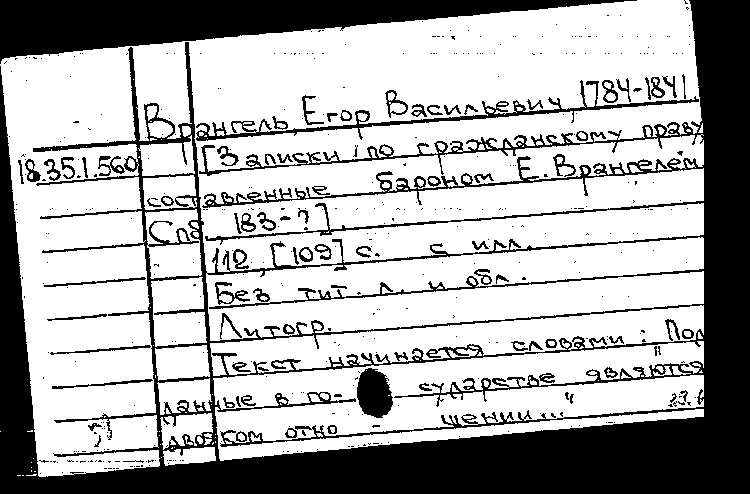 Врангель, Егор Васильевич, 1784-1841.
18.35.1.560 [Записки по гражданскому праву,
составленные бароном Е. Врангелем.
Спб., 183-?].
112, [109] с. с илл.
Без тит. л. и обл.
Литогр.
Текст начинается словами: "Под
данные в го- сударстве являются
двояком отно - шении..."